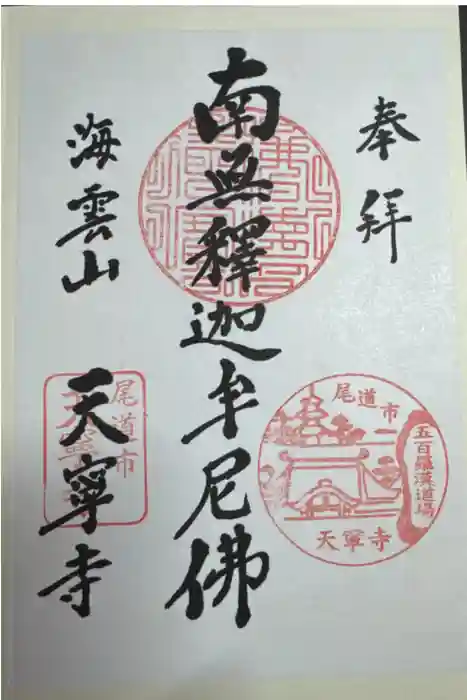 奉拝
南無釋迦牟尼佛
海雲山 天寧寺
尾道市
五百羅漢道場
天寧寺
尾道市